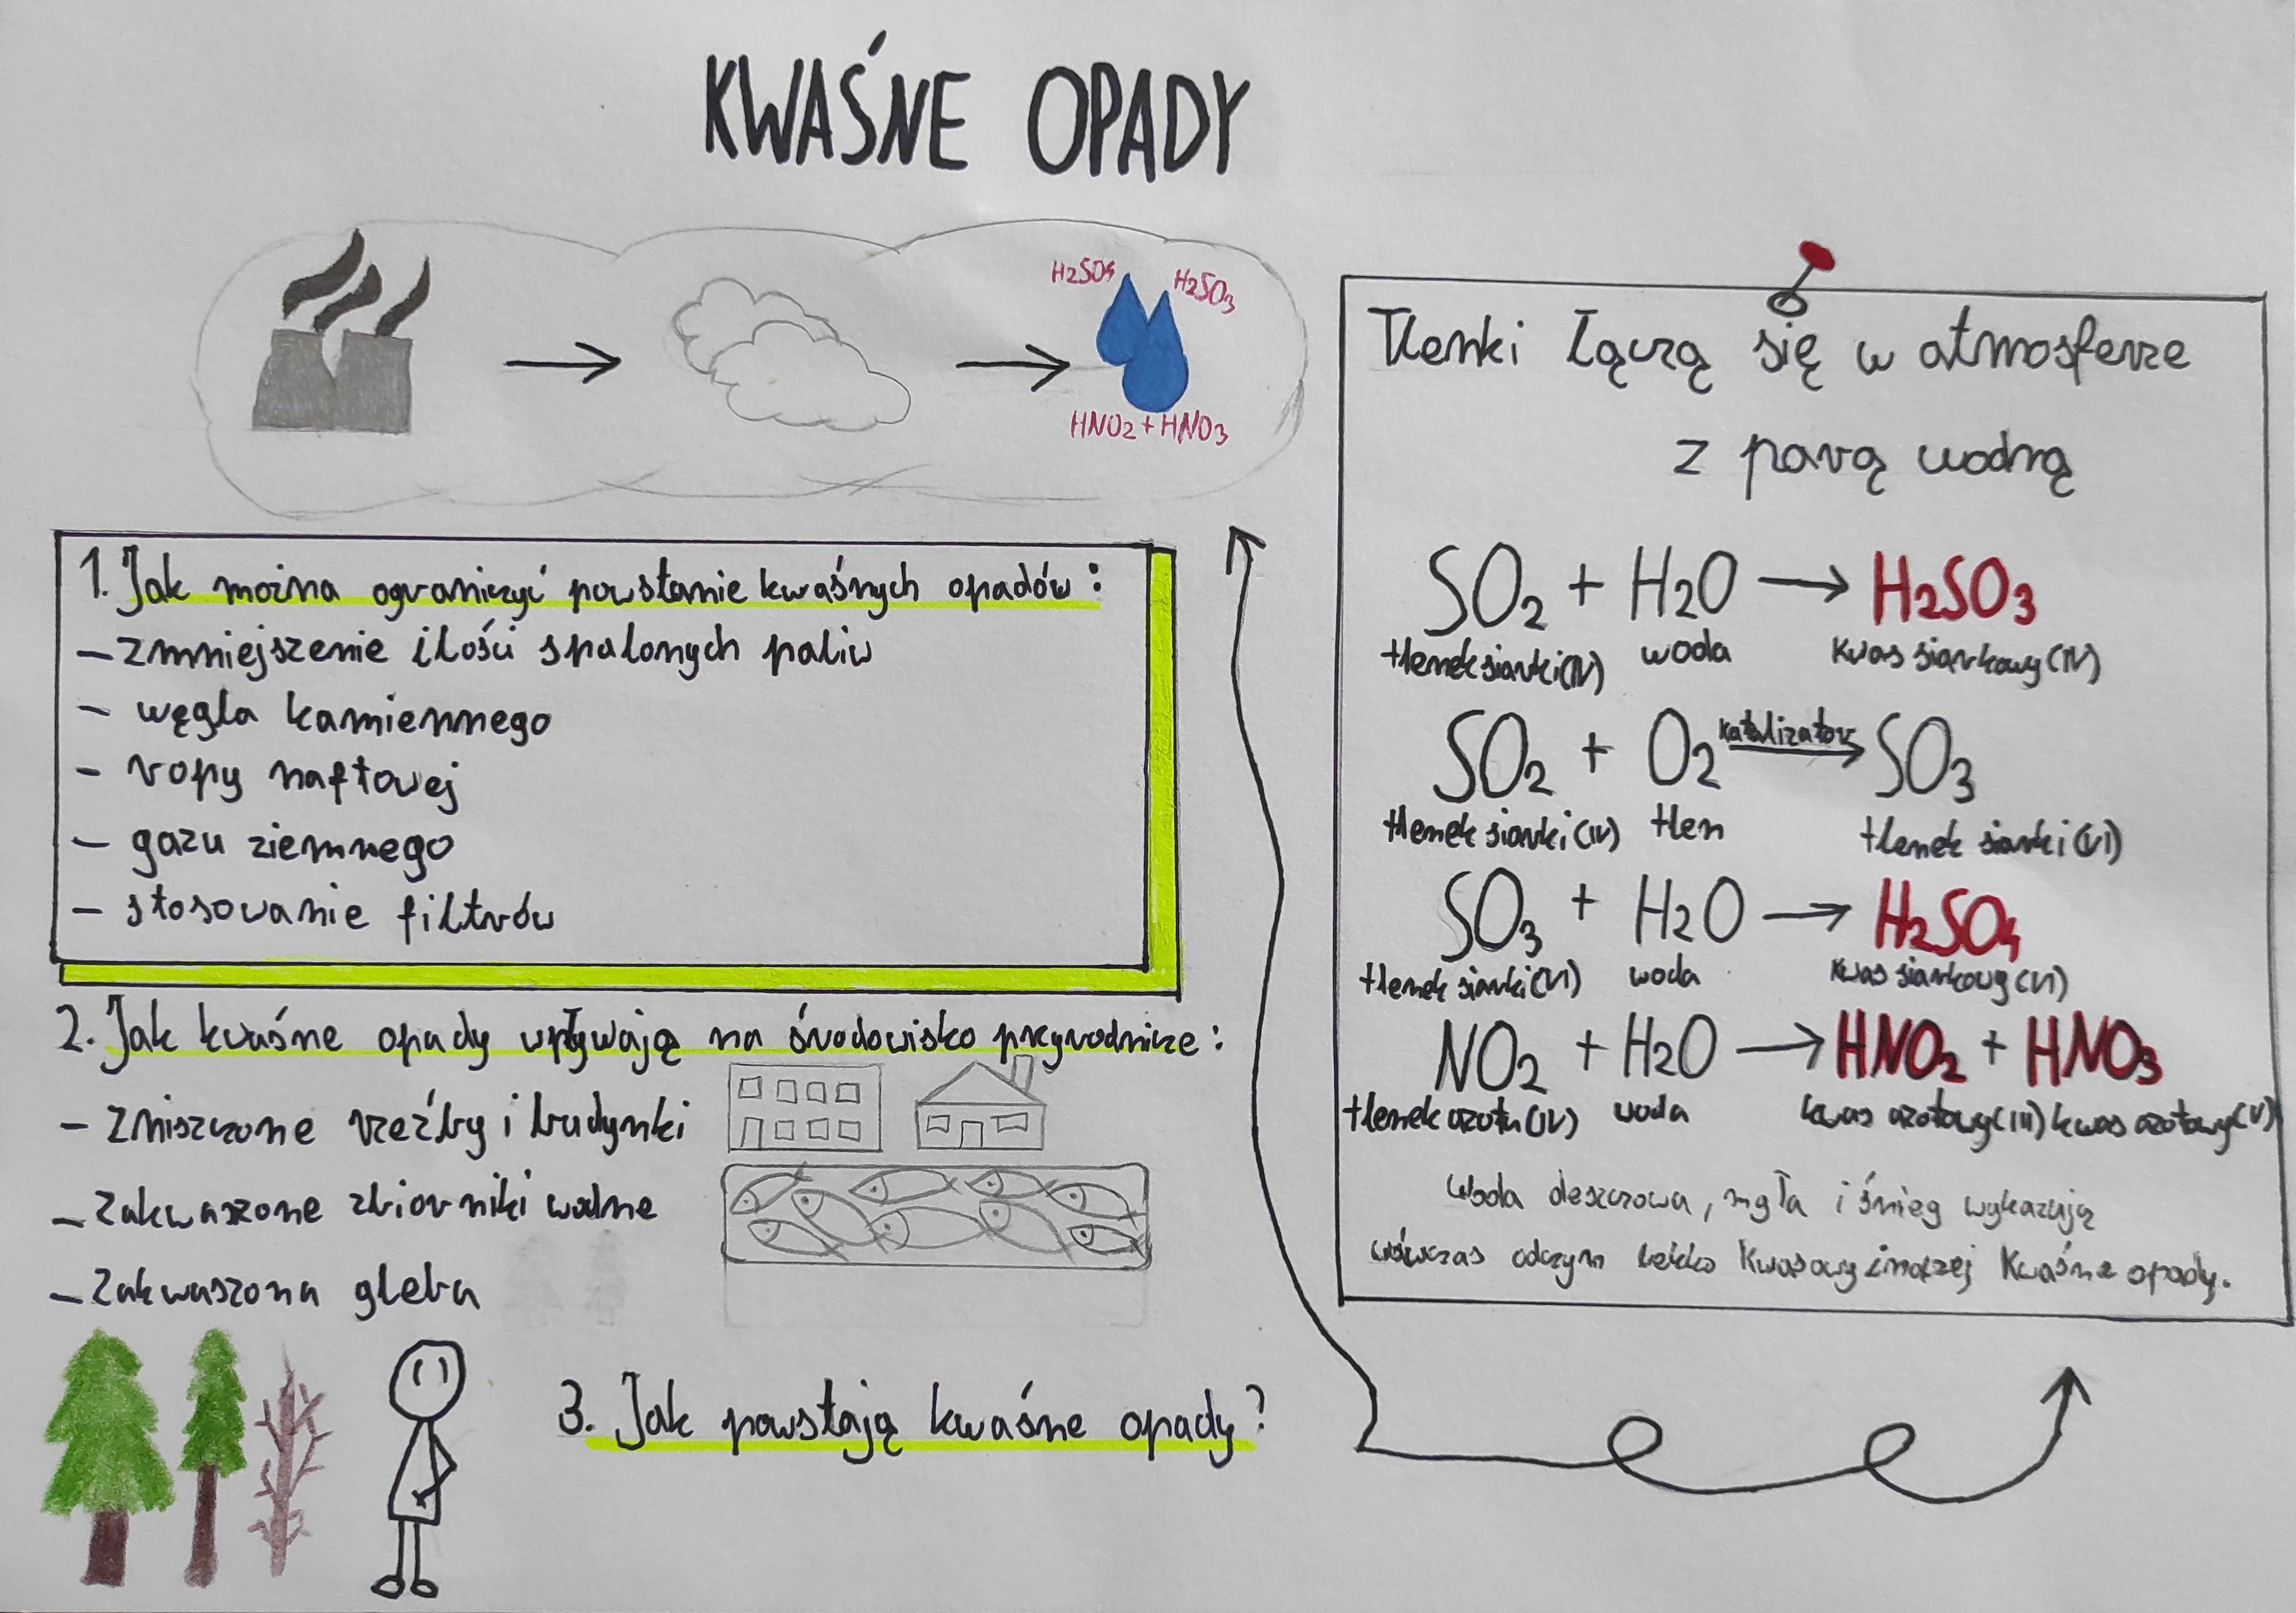 KWAŚNE OPADY
H2SO4
H2SO3
HNO2 + HNO3
1. Jak można ograniczyć powstanie kwaśnych opadów:
- zmniejszenie ilości spalonych paliw
- węgla kamiennego
- ropy naftowej
- gazu ziemnego
- stosowanie filtrów
2. Jak kwaśne opady wpływają na środowisko przyrodnicze:
- zniszczone rzeźby i budynki
- zakwaszone zbiorniki wodne
- zakwaszona gleba
3. Jak powstają kwaśne opady?
Tlenki łączą się w atmosferze
z parą wodną
SO2 + H2O → H2SO3
tlenek siarki(IV) woda kwas siarkowy(IV)
SO2 + O2 katalizator → SO3
tlenek siarki(IV) tlen tlenek siarki(VI)
SO3 + H2O → H2SO4
tlenek siarki(VI) woda kwas siarkowy(VI)
NO2 + H2O → HNO2 + HNO3
tlenek azotu(IV) woda kwas azotowy(III) kwas azotowy(V)
Woda deszczowa, mgła i śnieg wykazują
wówczas odczyn lekko kwasowy inaczej kwaśne opady.